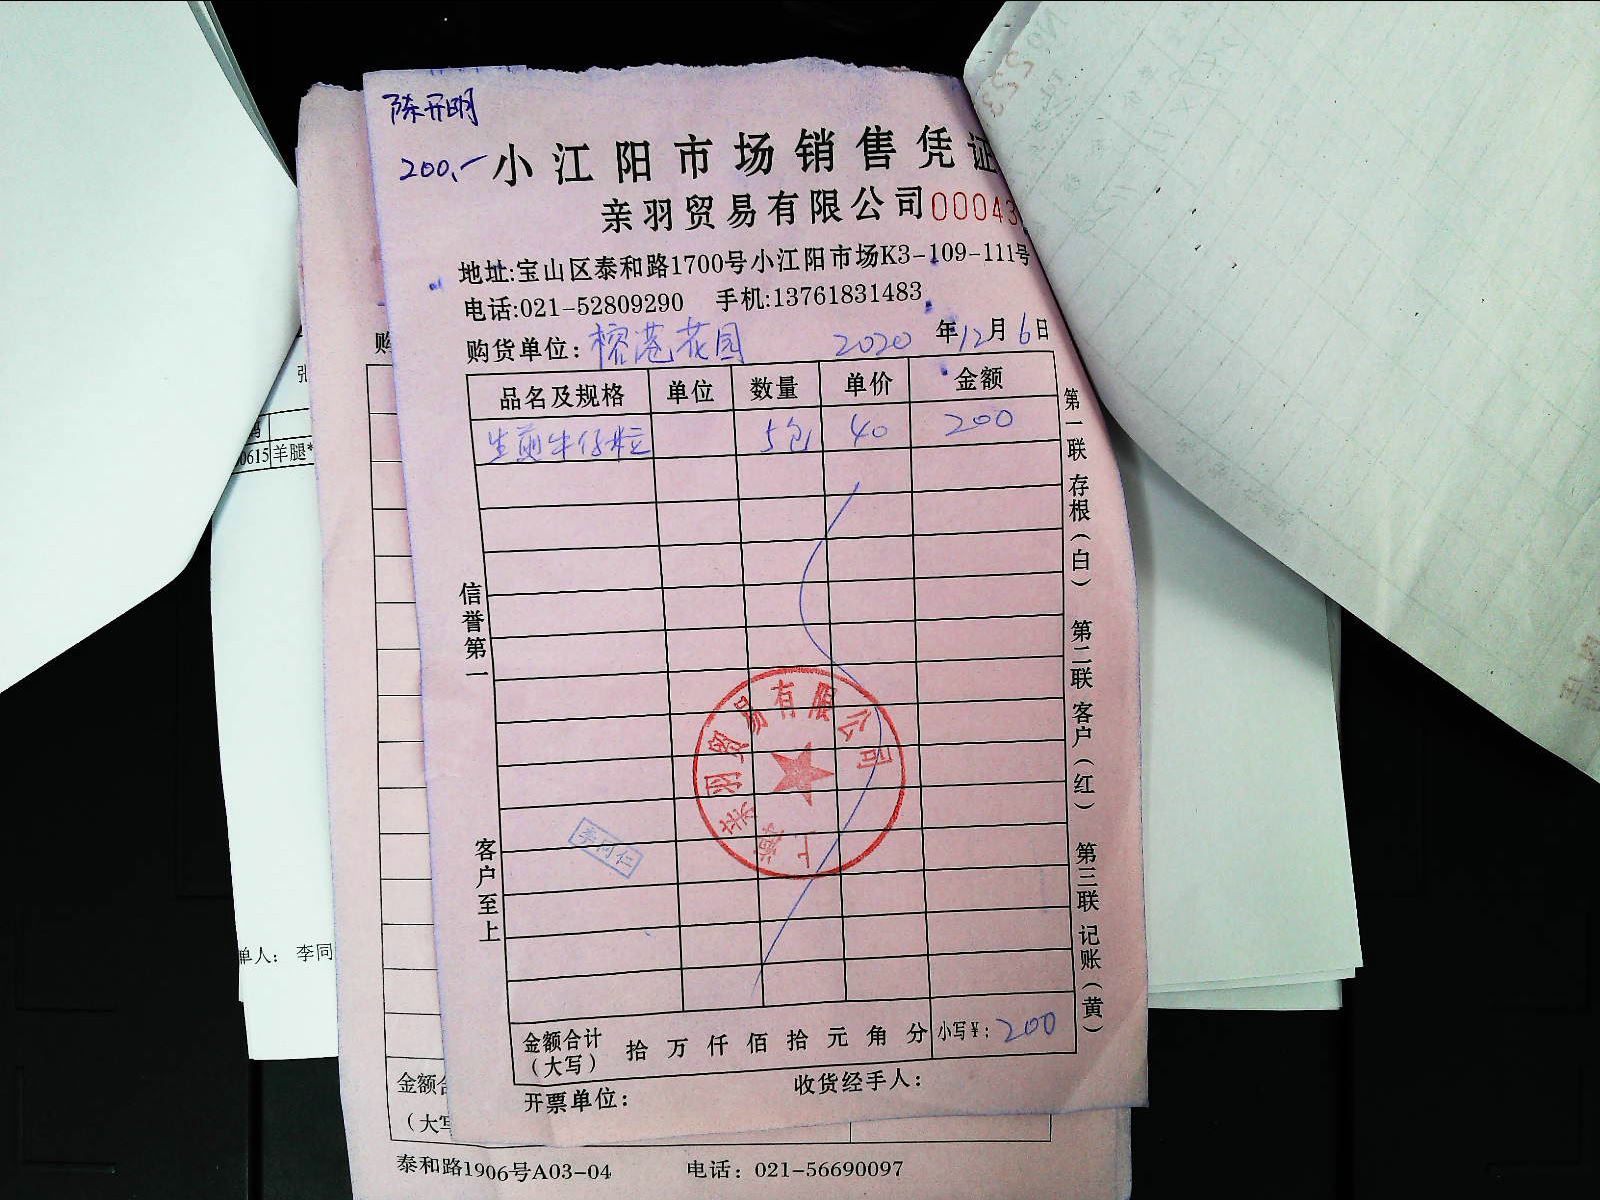 陈开明
200.-
小江阳市场销售凭证
亲羽贸易有限公司 00043
地址:宝山区泰和路1700号小江阳市场K3-109-111号
电话:021-52809290 手机:13761831483
购货单位: 榕港花园 2020 年 12 月 6 日
品名及规格 单位 数量 单价 金额
生煎牛仔粒 5包 40 200
金额合计(大写) 拾 万 仟 佰 拾 元 角 分 小写¥: 200
开票单位: 收货经手人:
信誉第一
客户至上
第一联 存根(白) 第二联 客户(红) 第三联 记账(黄)
上海亲羽贸易有限公司
李同仁
购
张
0615 羊腿*
单人: 李同
金额合
(大写
泰和路1906号A03-04 电话: 021-56690097